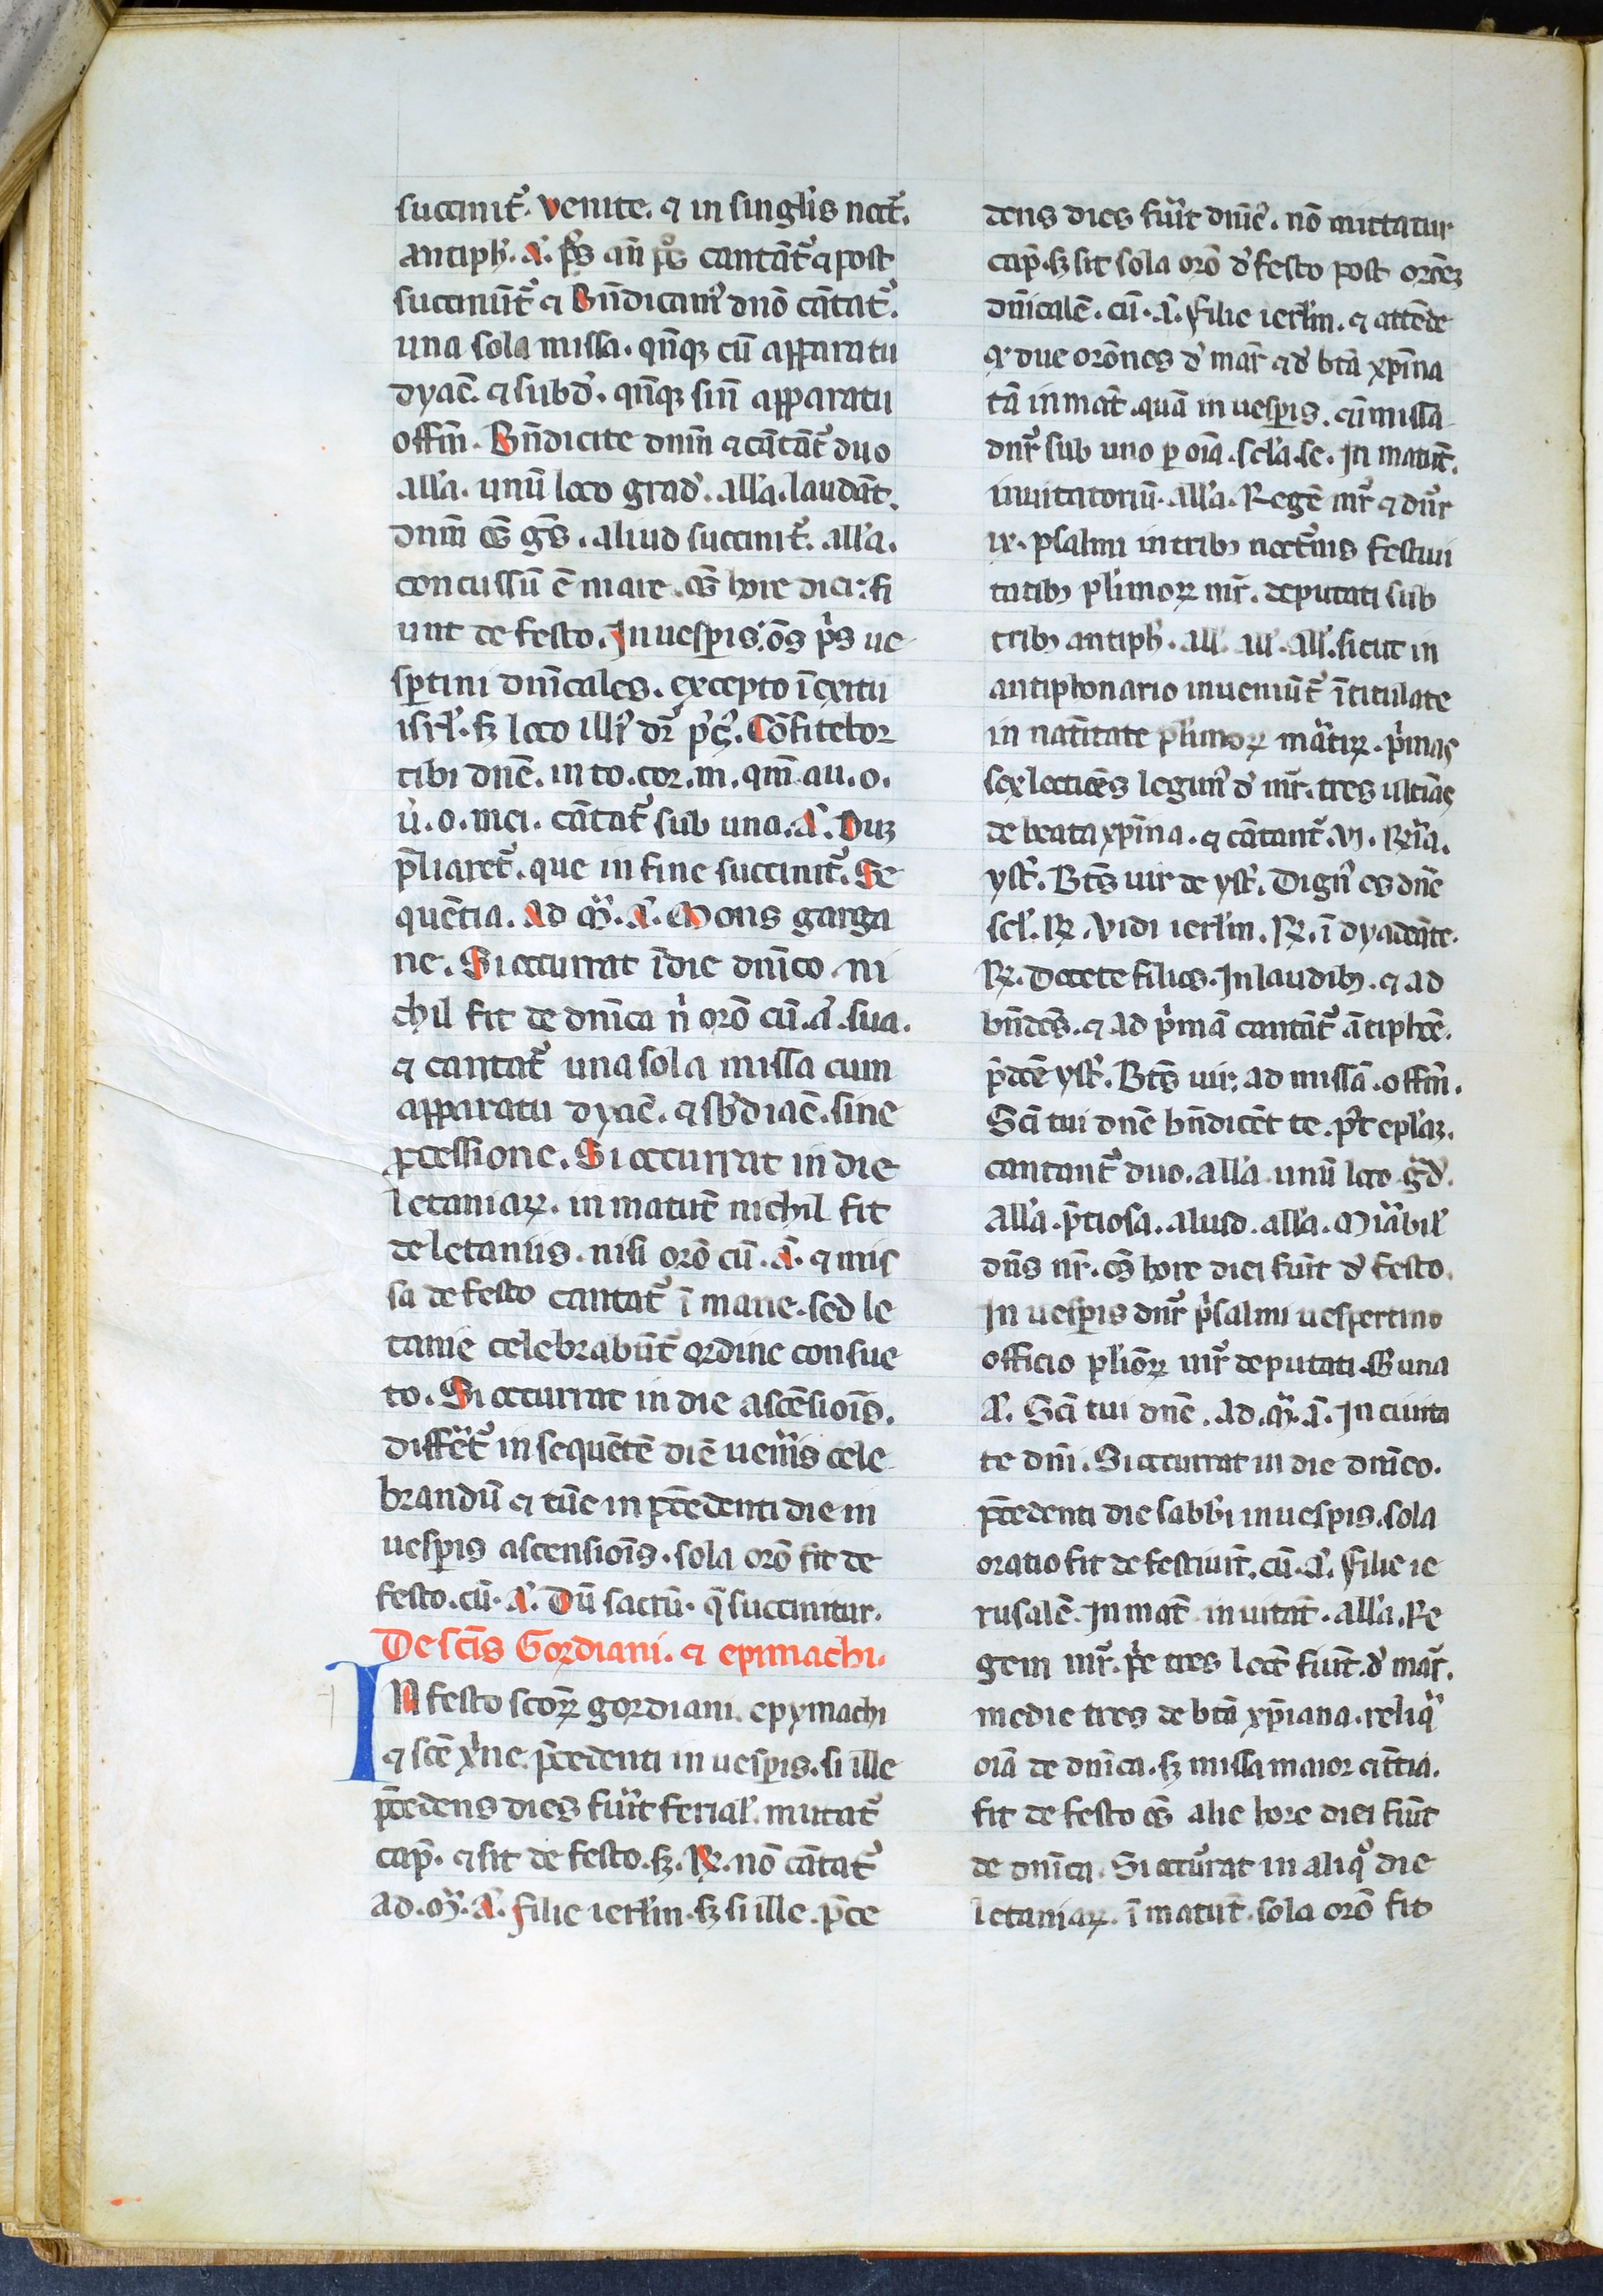 succinit᷑. venite. ⁊ in singl'is noct᷑.
antiph'. a᷑. p̄s añ p᷑s cantāt᷑ ⁊ post
succinūt᷑ ⁊ Bn̄dicam᷒ dn̄o cātat᷑.
una sola missa. qn̄q; cū apparatu
dyac̄. ⁊ subd'. qn̄q; sin̄ apparatu
offm̄. Bn̄dicite dn̄m ⁊ cātāt᷑ duo
all'a. unū loco grad'. all'a. laudāt.
dn̄m om̄s gn̄s. aliud succinit᷑. all'a.
concussū ē mare. om̄s hore diei: fi
unt de festo. In uesp̄is. om̄s p̄s ue
sp̄tini dn̄icales. excepto ī exitu
isrl'. sꝫ loco illi᷒ dr̄ p̄s. Cōfitebor
tibi dn̄e. in to. cor. m. qm̄ au. o.
u'. o. mei. cātat᷑ sub una. a᷑. Duꝫ
p̄liaret᷑. que in fine succinit᷑. Se
quētia. Ad m᷑. a᷑. Mons garga
ne. Si occurrat ī die dn̄ico. ni
chil fit de dn̄ica n̄ orō cū. a᷑. sua.
⁊ cantat᷑ una sola missa cum
apparatu dyac̄. ⁊ sb'diac̄. sine
ꝓcessione. Si occurrat in die
letaniaꝝ. in matut̄ nichil fit
de letaniis. nisi orō cū. a᷑. ⁊ mis
sa de festo cantat᷑ ī mane. sed le
tanie celebrabūt᷑ ordine consue
to. Si occurrat in die ascēsiōis.
differ̄t᷑ in sequētē diē uen̄is cele
brandū ⁊ tūc in p̄cedenti die in
uesp̄is ascensiōis. sola orō fit de
festo. cū. a᷑. Dū sacrū. q̄ succinitur.
De sc̄is Gordiani. ⁊ epimachi.
In festo sc̄oꝝ gordiani. epymachi
⁊ sc̄e x᷑ne. p̄cedenti in uesp̄is. si ille
p̄cedens dies fu'it ferial'. mutat᷑
cap̄. ⁊ fit de festo. sꝫ. ꝶ. nō cātat᷑
ad. m᷑. a᷑. filie ierl'm. sꝫ si ille. p̄ce
dens dies fu'it dn̄ic᷒. nō mittatur
cap̄. sꝫ fit sola orō d' festo post orōeꝫ
dn̄icalē. cū. a᷑. filie ierl'm. ⁊ attēde
q᷑ due orōnes d' mar̄ ⁊ d' btā xp̄ina
tā in mat̄. quā in uesp̄is. cū missa
dn̄r sub uno p oīa. scl'a. sc. In matut̄.
inuitatoriū. all'a. Regē mr̄ ⁊ dn̄r
ix. psalmi in tribꝰ noct̄nis festiui
tatibꝰ pl'imoꝝ mr̄. deputati sub
tribꝰ antiph'. all'. all'. all'. sicut in
antiphonario inueniūt᷑ ītitulate
in nat̄itate pl'imoꝝ mār̄tiꝝ. p'mas
sex lectiōes legim᷒ d' mr̄. tres ultīas
de beata xp̄ina. ⁊ cātant᷑. vi. ꝶ'ia.
yst᷑. Bt̄s uir de yst᷑. Dign᷒ es dn̄e
scl'. ꝶ. vidi ierl'm. ꝶ. ī dyademate.
ꝶ. Docete filios. In laudibꝰ. ⁊ ad
bn̄dc̄s. ⁊ ad p'mā cantāt᷑ ātiphōe.
p̄dc̄e yst᷑. Bt̄s uir. ad missā. offm̄.
Sc̄i tui dn̄e bn̄dicēt te. p't epl'aꝫ.
cantant᷑ duo. all'a. unū loco g᷑d'.
all'a. p̄tiosa. aliud. all'a. Mirābil'
dn̄s nr̄. om̄s hore diei fiūt d' festo.
In uesp̄is dn̄r p'salmi uespertino
officio pl'ioꝝ mr̄ deputati. sb' una
a᷑. Sc̄i tui dn̄e. Ad. m᷑. a᷑. In ciuita
te dn̄i. Si occurrat in die dn̄ico.
p̄cedenti die sabb'i in uespis. sola
oratio fit de festiuit̄. cū. a᷑. filie ie
rusalē. In mat̄ inuitat̄. all'a. Re
gem mr̄. p'e tres lect̄ fiūt. d' mar̄.
medie tres de btā xp̄iana. reliq᷑
oīa de dn̄ica. sꝫ missa maior ⁊ t̄tia.
fit de festo om̄s alie hore diei fiūt
de dn̄ica. Si occur̄rat in aliqͦ die
letaniaꝝ. ī matut̄. sola orō fit